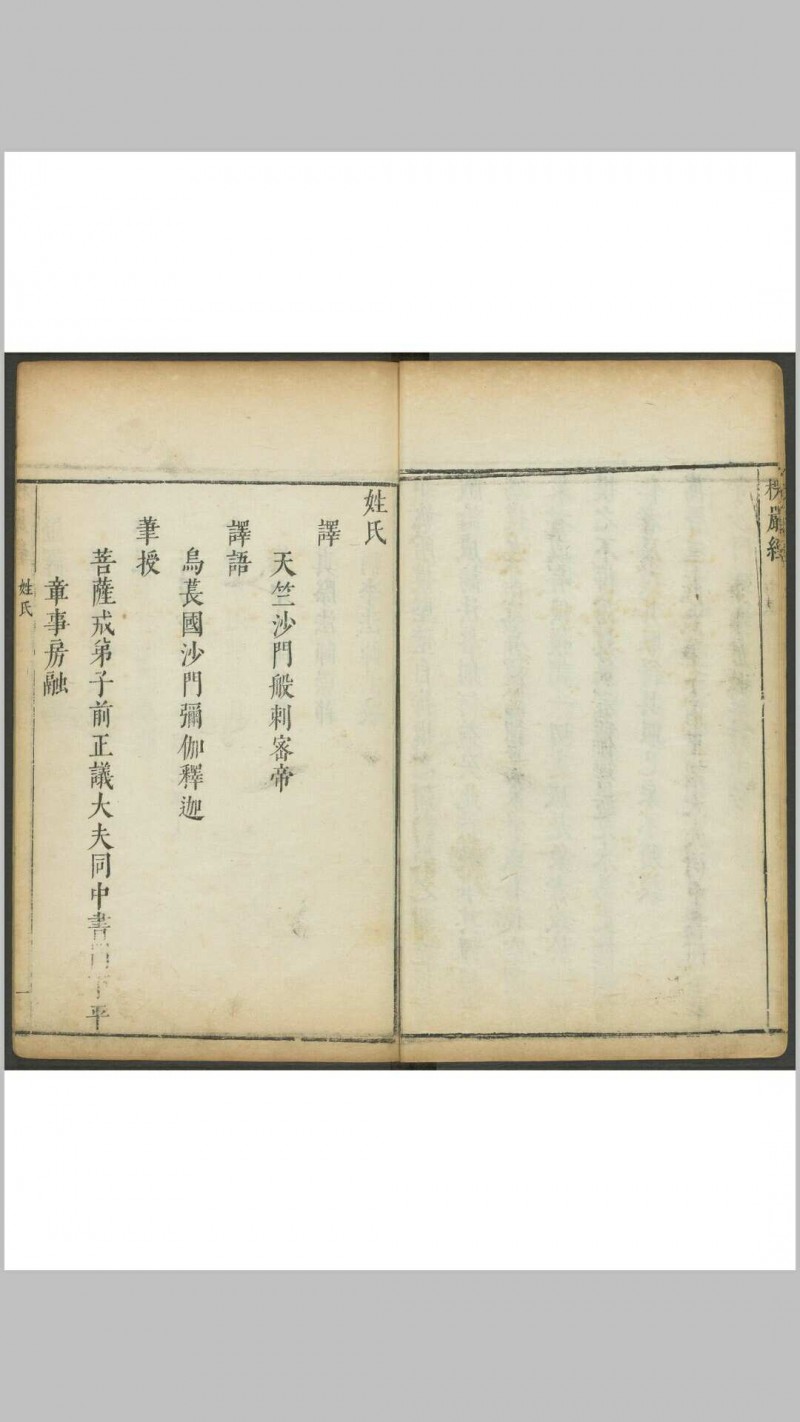 楞嚴經
姓氏
譯
天竺沙門般剌宻帝
譯語
烏萇國沙門彌伽釋迦
筆授
菩薩戒弟子前正議大夫同中書門下平
章事房融
姓氏
一